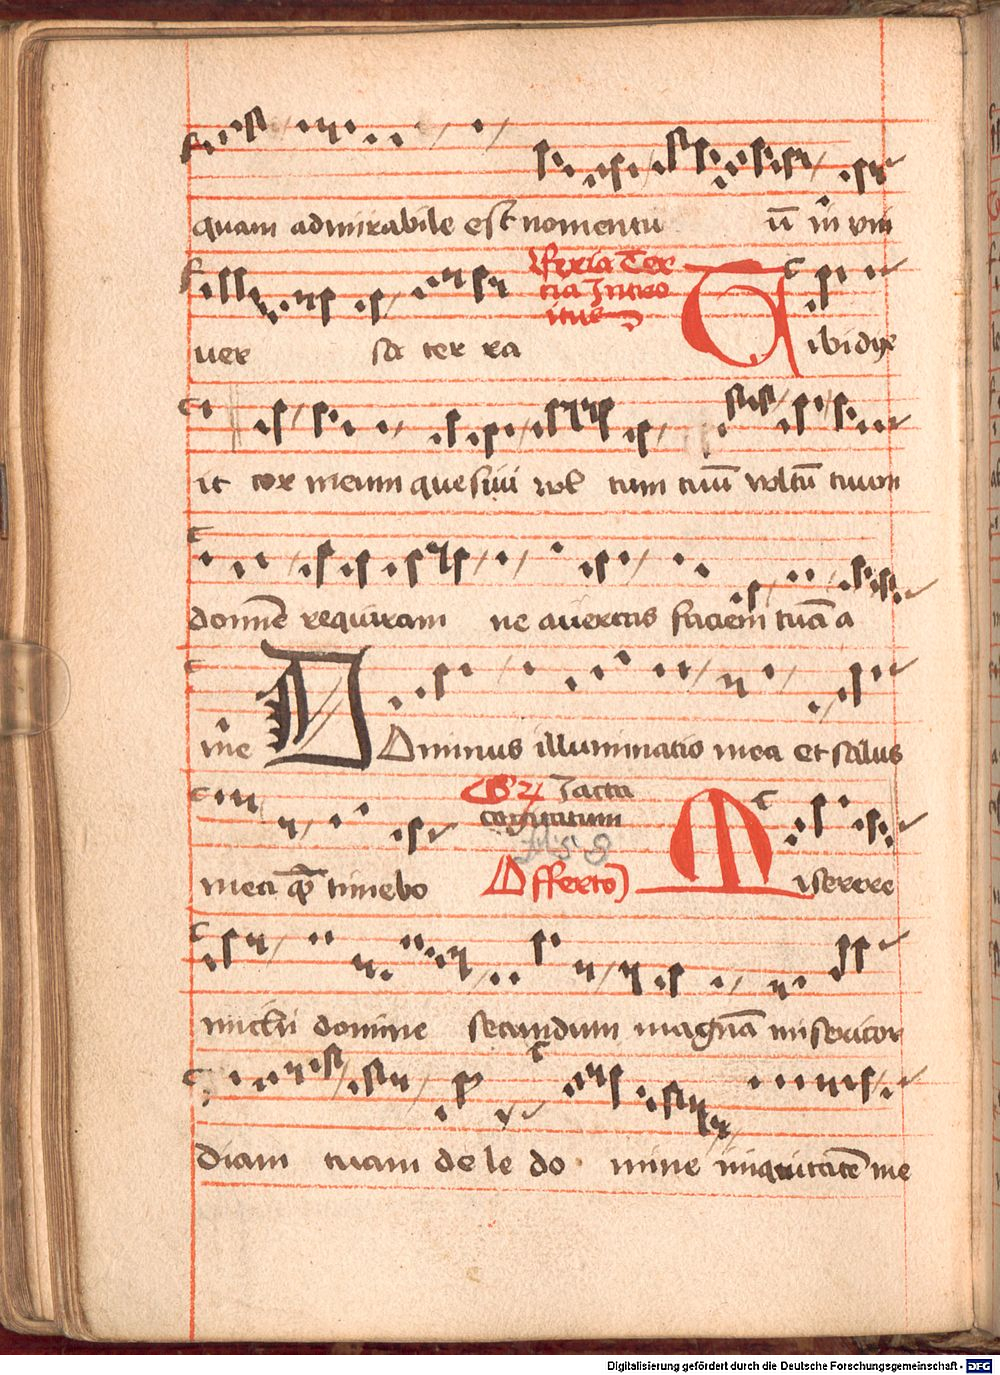 quam admirabile est nomen tuū in vni
uer sa ter ra
Feria Ter
tia Intro
itus
Tibi dix
it cor meum quesiui vol tum tuū voltū tuum
domīe requiram ne auertas faciem tuā a
me Dominus illuminatio mea et salus
mea quē timebo
Gr Iacta
cogitatum
158
Offerto
Miserere
michi domine secundum magnā misericor
diam tuam dele do mine iniquitatē me
Digitalisierung gefördert durch die Deutsche Forschungsgemeinschaft - DFG